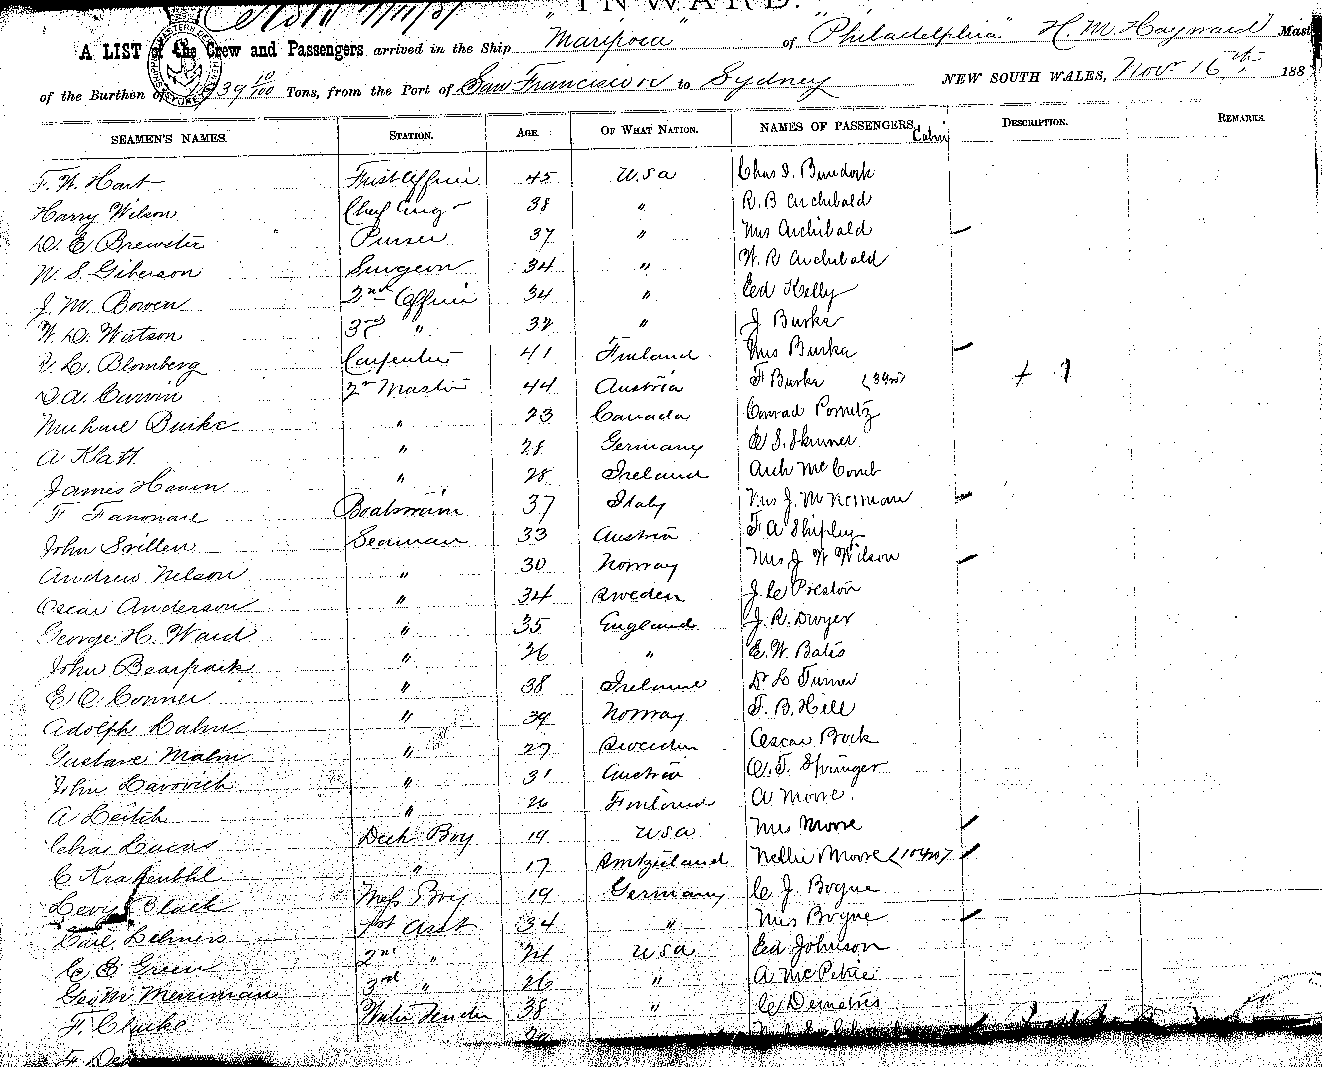 INWARD.
A LIST of the Crew and Passengers arrived in the Ship "Mariposa" of "Philadelphia" H. M. Hayward Mast
of the Burthen of 39 10/100 Tons, from the Port of San Francisco to Sydney NEW SOUTH WALES, Novr 16th 188
SEAMEN'S NAMES. STATION. AGE. OF WHAT NATION. NAMES OF PASSENGERS Cabin DESCRIPTION. REMARKS.
F. W. Hart First Officer 45 USA Chas S.
Harry Wilson Chief Engr 38 " R. B Archibald
D. E Brewster Purser 37 " Mrs Archibald
W. S. Giberson Surgeon 34 " W. R Archibald
J. M. Bowen 2nd Officer 34 " Ed Kelly
W. D. Watson 3rd " 32 " J Burke
Blomberg Carpenter 41 Finland Mrs Burke
D. A. Curvin 2r Master 44 Austria F Burke (3 yrs)
Michael Burke " 23 Canada Conrad
A Klatt " 28 Germany E S. Skinner
James Haven " 28 Ireland Arch McComb
F Boatswain 37 Italy Mrs J. M
John Seaman 33 Austria F A Shipley
Andrew Nelson " 30 Norway Mrs J W Wilson
Oscar Anderson " 34 Sweden J. C Preston
George H. Ward " 35 England J. R. Dwyer
John Bearpark " 36 " E. W. Bates
E O. Conner " 38 Ireland Dr L Turner
Adolph Dahm " 39 Norway F. B. Hill
Gustave Malm " 27 Sweden Oscar Bock
John " 31 Austria O. T. Springer
A Leitch " 26 Finland A Moore.
Chas Lucas Deck Boy 19 USA Mrs Moore
C " 17 Switzerland Nellie Moore (10 yrs)
Levy Black Mess Boy 19 Germany C J. Bogue
Carl Lehners 1st Asst 34 " Mrs Bogue
C E Green 2nd " 24 USA Ed Johnson
Geo M. Merriman 3rd " 26 " A McPetrie
F. Clarke Water Tender 38 " C Demetris
F